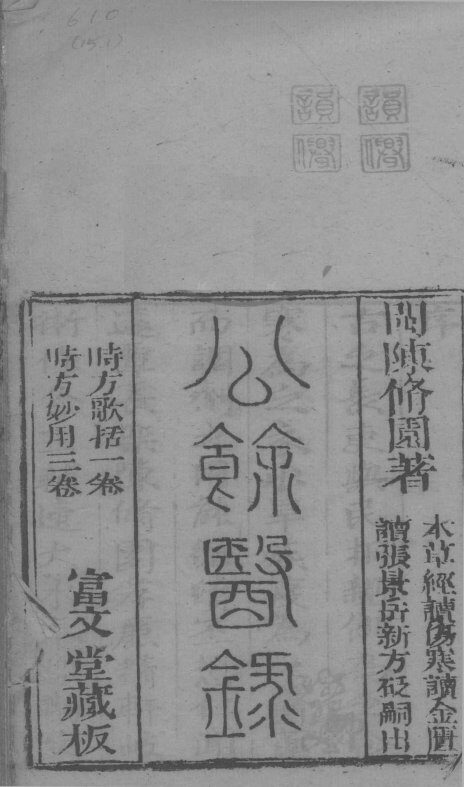 610
(15,1)
閩陳修園著
本草經讀傷寒讀金匱
讀張景岳新方砭嗣出
公餘醫録
時方歌括一卷
時方妙用三卷
富文堂藏板